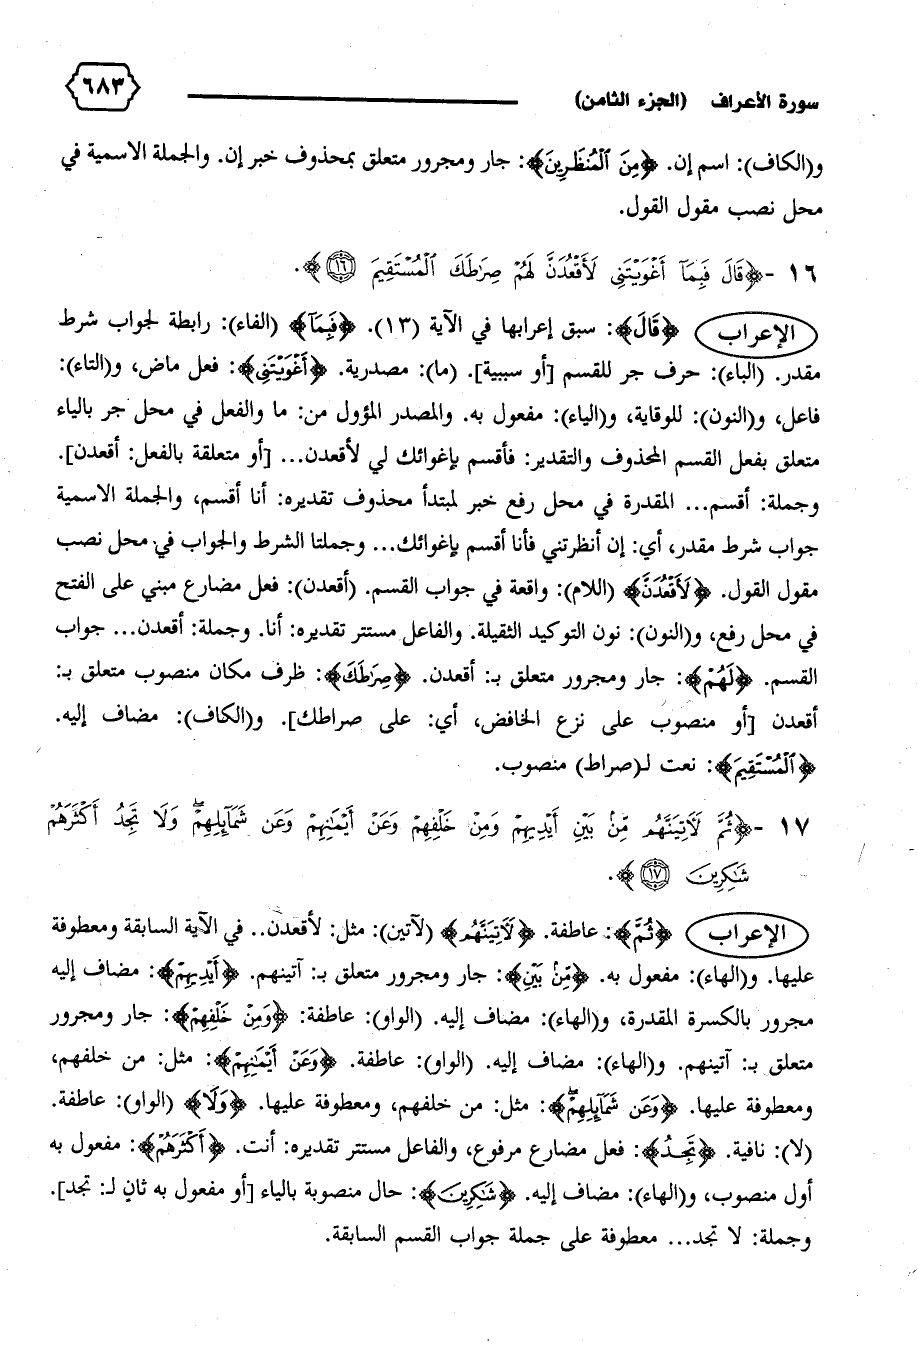 سورة الأعراف (الجزء الثامن)
٦٨٣
و(الكاف): اسم إن. ﴿مِنَ ٱلْمُنظَرِينَ﴾: جار ومجرور متعلق بمحذوف خبر إن. والجملة الاسمية في
محل نصب مقول القول.
١٦ -﴿قَالَ فَبِمَآ أَغْوَيْتَنِى لَأَقْعُدَنَّ لَهُمْ صِرَٰطَكَ ٱلْمُسْتَقِيمَ ١٦﴾.
الإعراب ﴿قَالَ﴾: سبق إعرابها في الآية (١٣). ﴿فَبِمَآ﴾ (الفاء): رابطة لجواب شرط
مقدر. (الباء): حرف جر للقسم [أو سببية]. (ما): مصدرية. ﴿أَغْوَيْتَنِى﴾: فعل ماض، و(التاء):
فاعل، و(النون): للوقاية، و(الياء): مفعول به. والمصدر المؤول من: ما والفعل في محل جر بالياء
متعلق بفعل القسم المحذوف والتقدير: فأقسم بإغوائك لي لأقعدن... [أو متعلقة بالفعل: أقعدن].
وجملة: أقسم... المقدرة في محل رفع خبر لمبتدأ محذوف تقديره: أنا أقسم، والجملة الاسمية
جواب شرط مقدر، أي: إن أنظرتني فأنا أقسم بإغوائك... وجملتا الشرط والجواب في محل نصب
مقول القول. ﴿لَأَقْعُدَنَّ﴾ (اللام): واقعة في جواب القسم. (أقعدن): فعل مضارع مبني على الفتح
في محل رفع، و(النون): نون التوكيد الثقيلة. والفاعل مستتر تقديره: أنا. وجملة: أقعدن... جواب
القسم. ﴿لَهُمْ﴾: جار ومجرور متعلق بـ: أقعدن. ﴿صِرَٰطَكَ﴾: ظرف مكان منصوب متعلق بـ:
أقعدن [أو منصوب على نزع الخافض، أي: على صراطك]. و(الكاف): مضاف إليه.
﴿ٱلْمُسْتَقِيمَ﴾: نعت لـ(صراط) منصوب.
١٧ -﴿ثُمَّ لَآتِيَنَّهُم مِّنۢ بَيْنِ أَيْدِيهِمْ وَمِنْ خَلْفِهِمْ وَعَنْ أَيْمَٰنِهِمْ وَعَن شَمَآئِلِهِمْ ۖ وَلَا تَجِدُ أَكْثَرَهُمْ
شَٰكِرِينَ ١٧﴾.
الإعراب ﴿ثُمَّ﴾: عاطفة. ﴿لَآتِيَنَّهُم﴾ (لآتين): مثل: لأقعدن.. في الآية السابقة ومعطوفة
عليها. و(الهاء): مفعول به. ﴿مِّنۢ بَيْنِ﴾: جار ومجرور متعلق بـ: آتينهم. ﴿أَيْدِيهِمْ﴾: مضاف إليه
مجرور بالكسرة المقدرة، و(الهاء): مضاف إليه. (الواو): عاطفة: ﴿وَمِنْ خَلْفِهِمْ﴾: جار ومجرور
متعلق بـ: آتينهم. و(الهاء): مضاف إليه. (الواو): عاطفة. ﴿وَعَنْ أَيْمَٰنِهِمْ﴾: مثل: من خلفهم،
ومعطوفة عليها. ﴿وَعَن شَمَآئِلِهِمْ ۖ﴾: مثل: من خلفهم، ومعطوفة عليها. ﴿وَلَا﴾ (الواو): عاطفة.
(لا): نافية. ﴿تَجِدُ﴾: فعل مضارع مرفوع، والفاعل مستتر تقديره: أنت. ﴿أَكْثَرَهُمْ﴾: مفعول به
أول منصوب، و(الهاء): مضاف إليه. ﴿شَٰكِرِينَ﴾: حال منصوبة بالياء [أو مفعول به ثانٍ لـ: تجد].
وجملة: لا تجد... معطوفة على جملة جواب القسم السابقة.